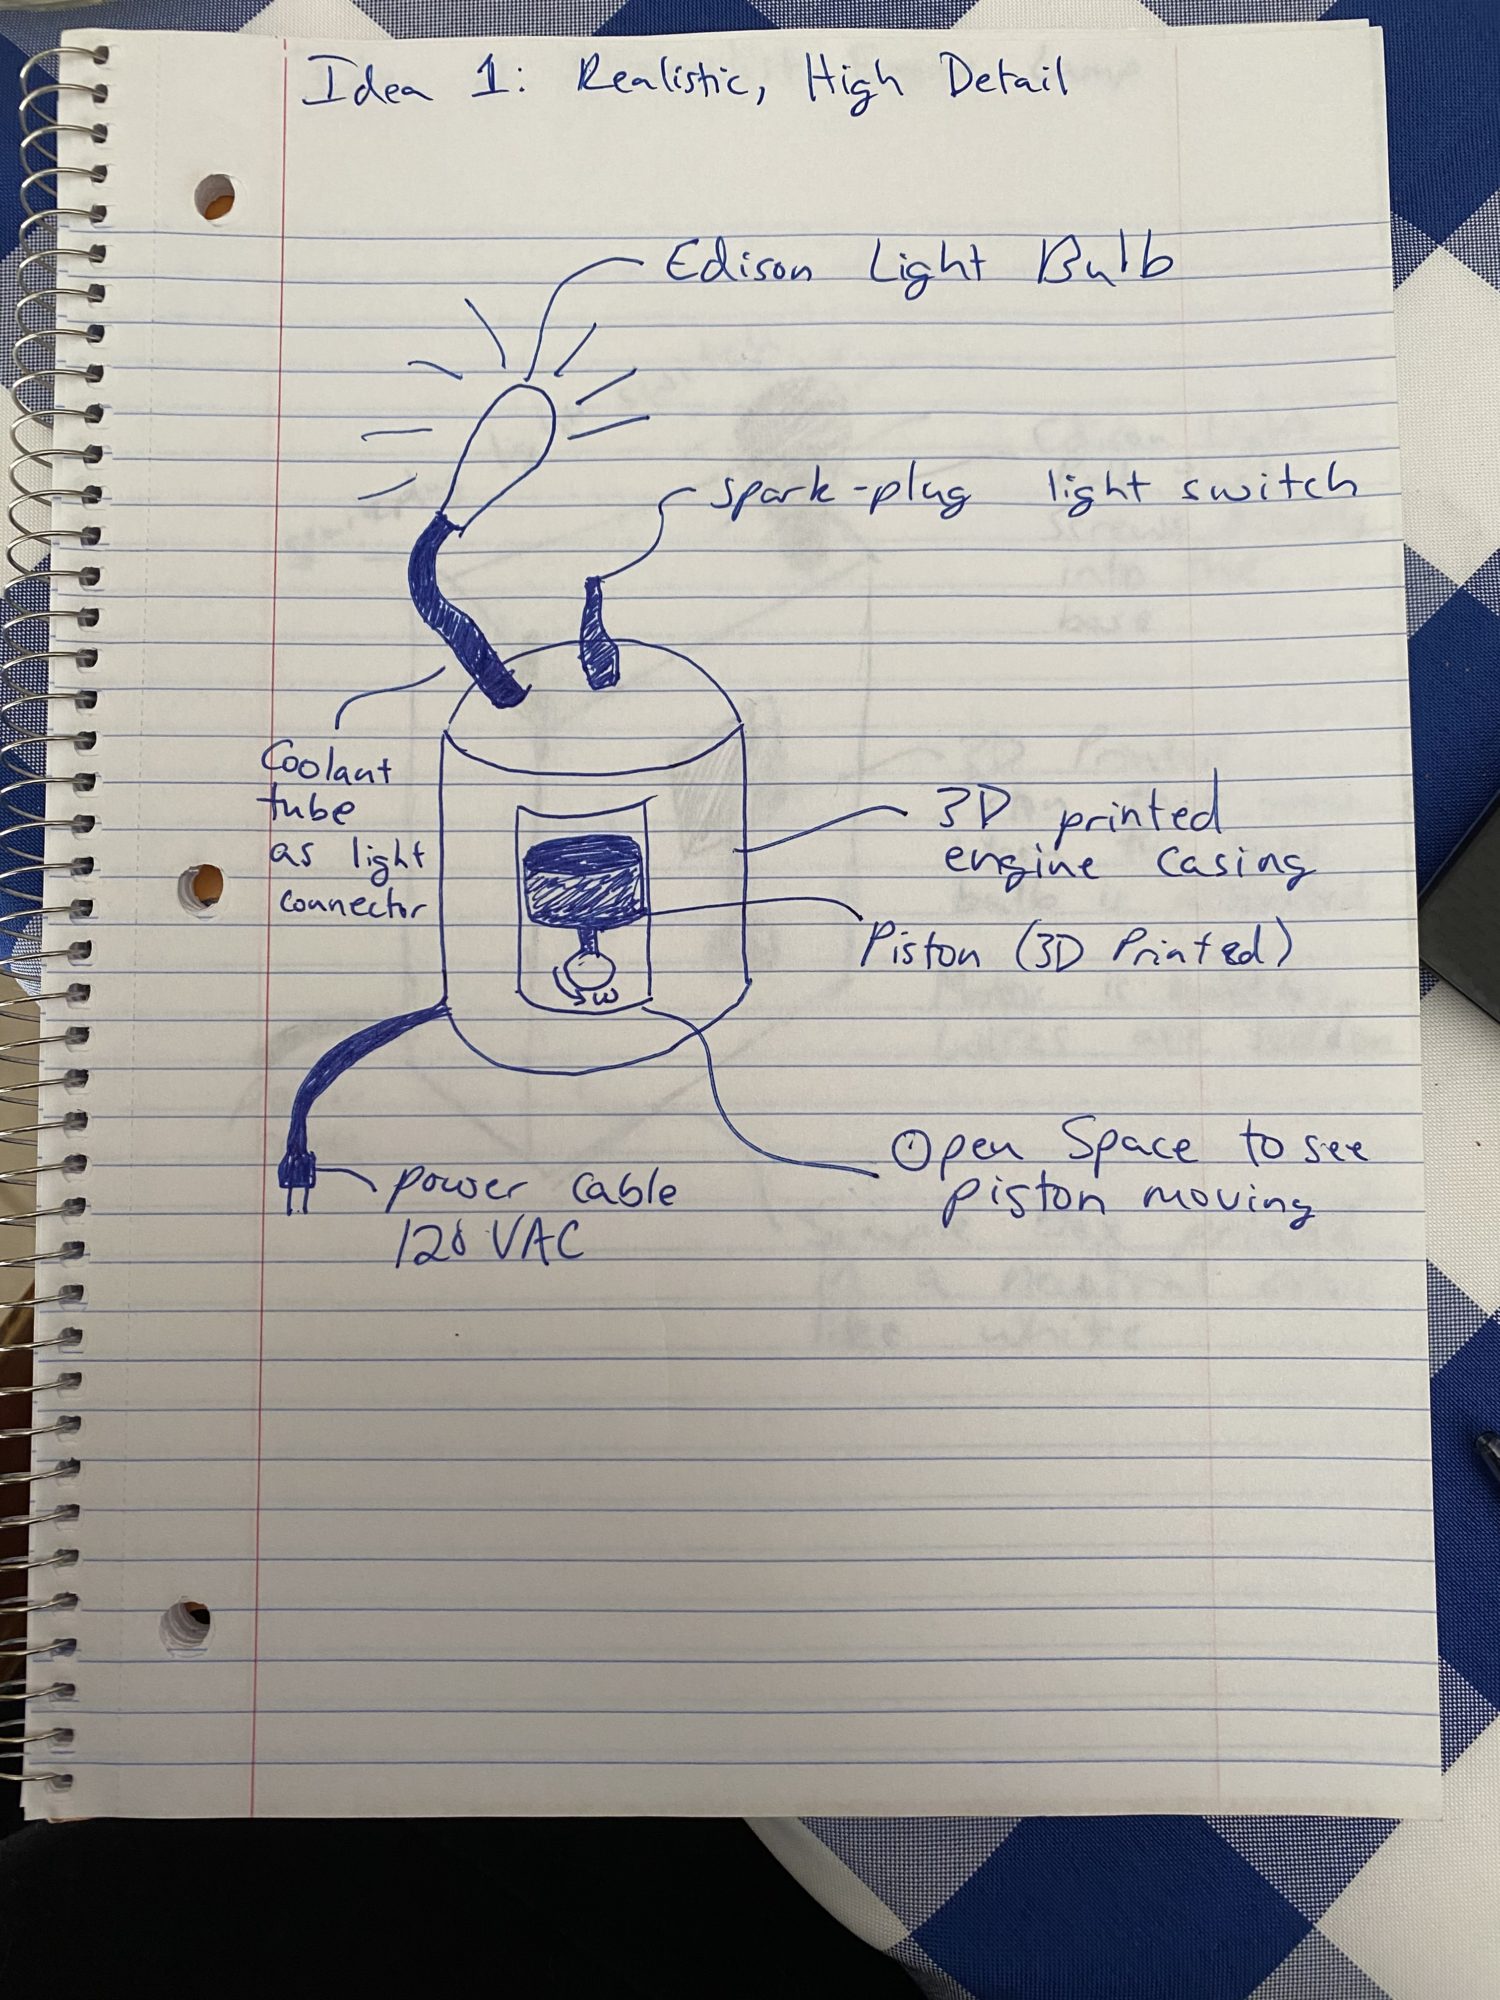 Idea 1: Realistic, High Detail
Edison Light Bulb
spark-plug light switch
Coolant
tube
as light
connector
3D printed
engine casing
Piston (3D Printed)
ω
Open Space to see
piston moving
power cable
120 VAC